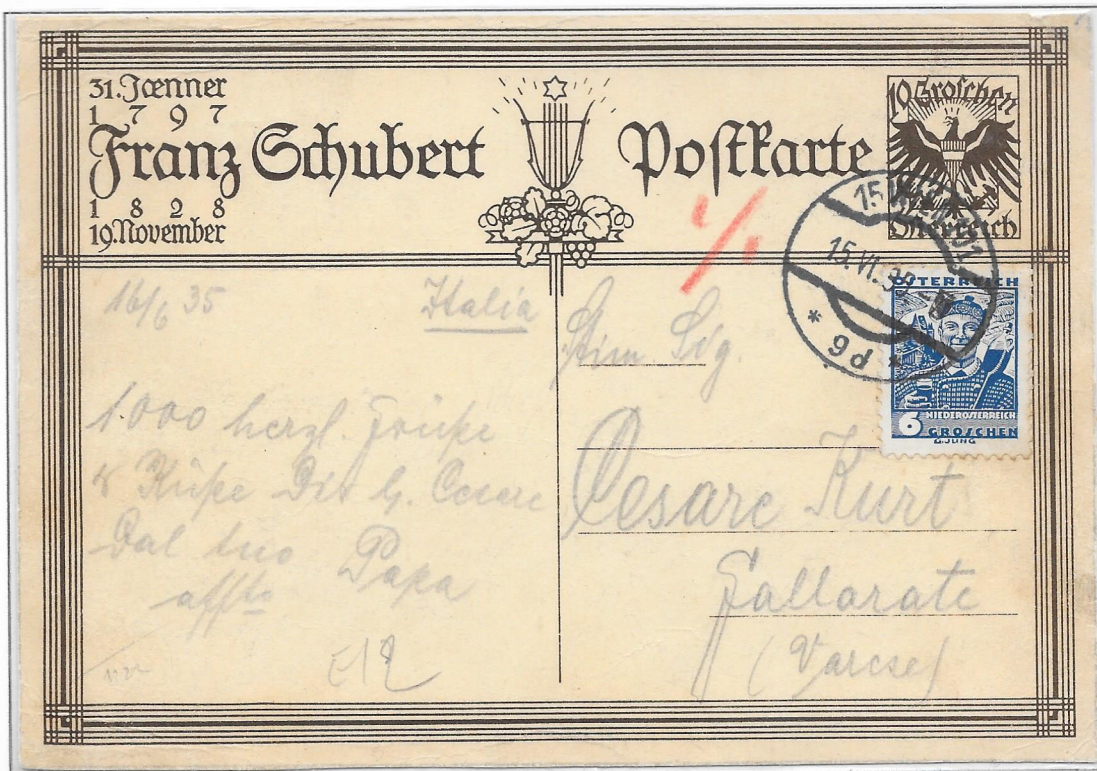 31. Jaenner
1797
Franz Schubert
1828
19. November
Postkarte
10 Groschen
Österreich
15. VI. 3
* 9d *
ÖSTERREICH
NIEDERÖSTERREICH
6 GROSCHEN
G. JUNG
1/1
16/6 35
Italia
1.000 herzl. Grüße
& Küße Dir l. Cesare
dal tuo Papa
affto
E12
Stim Sig.
Cesare Kurt
Gallarate
(Varese)